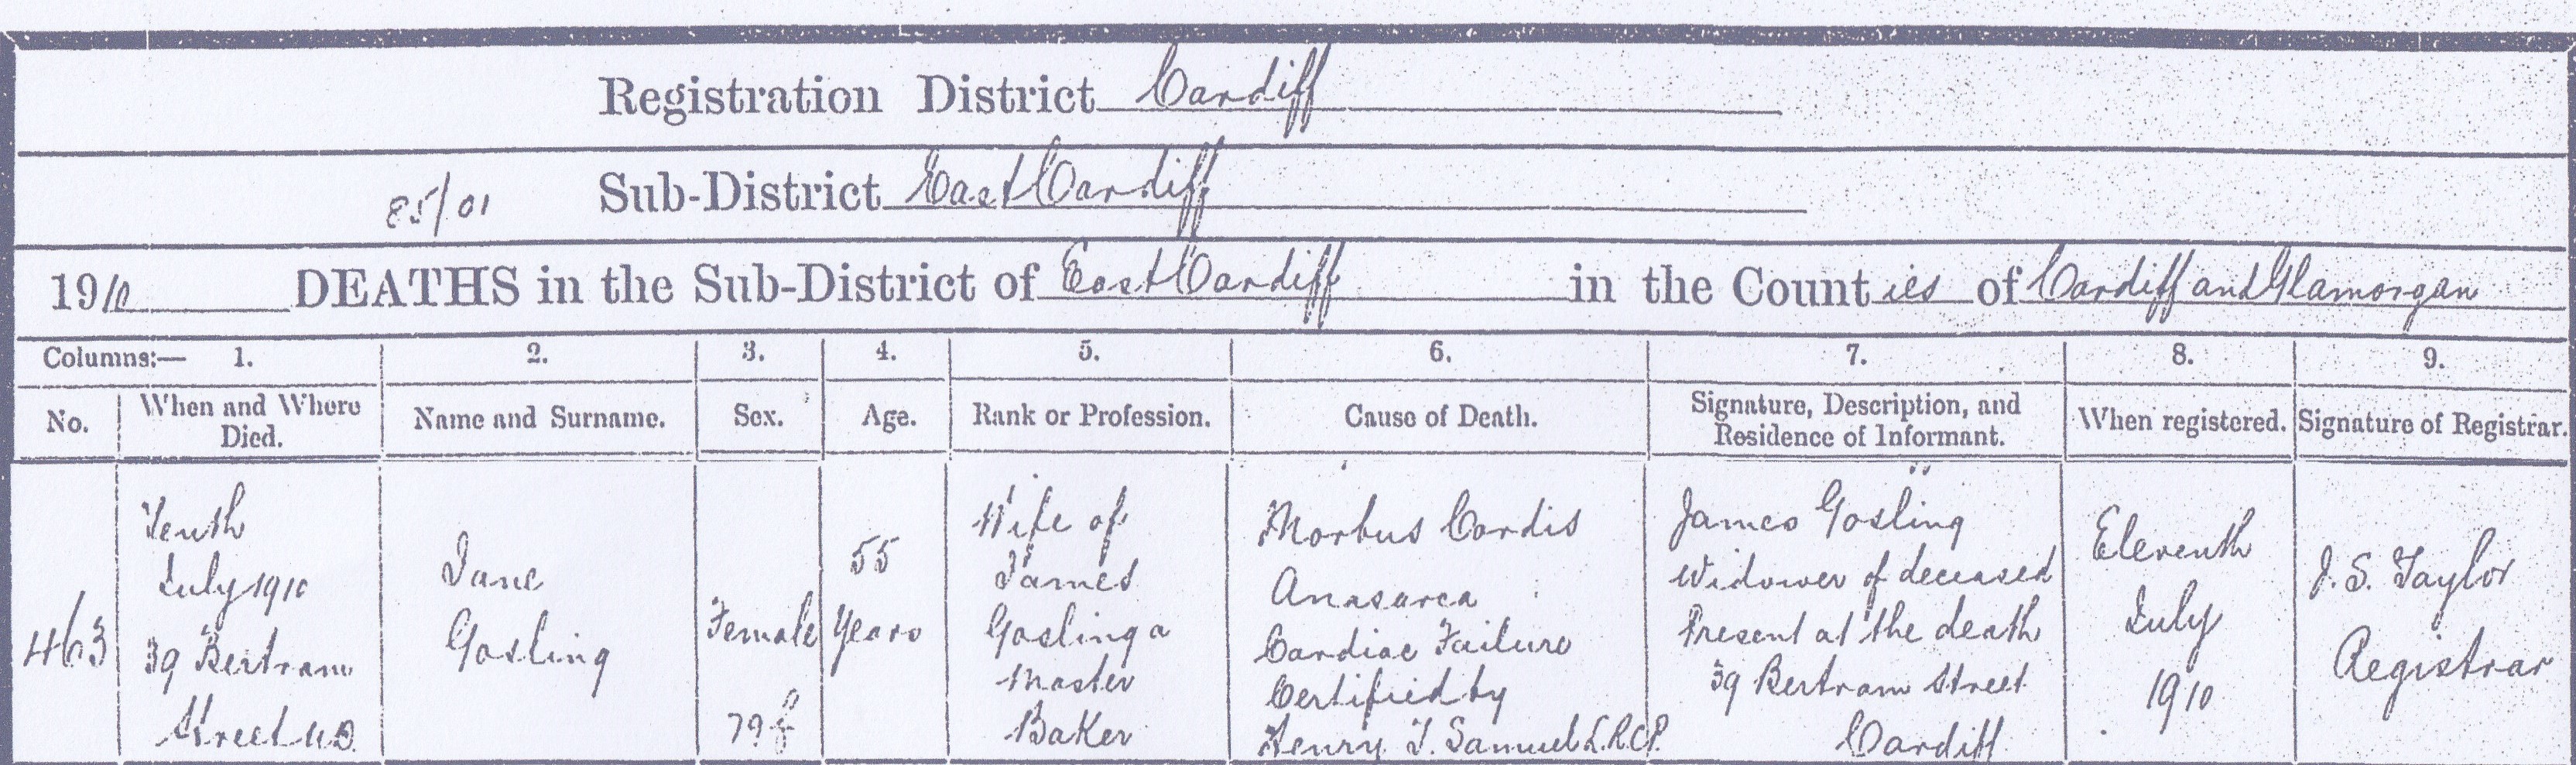 Registration District Cardiff
85/01 Sub-District East Cardiff
1910 DEATHS in the Sub-District of East Cardiff in the Counties of Cardiff and Glamorgan
Columns:— 1. 2. 3. 4. 5. 6. 7. 8. 9.
No. When and Where Died. Name and Surname. Sex. Age. Rank or Profession. Cause of Death. Signature, Description, and Residence of Informant. When registered. Signature of Registrar.
463
Tenth
July 1910
39 Bertram
Street U.D.
Jane
Gosling
Female
79 f
55
Years
Wife of
James
Gosling a
Master
Baker
Morbus Cordis
Anasarca
Cardiac Failure
Certified by
Henry T. Samuel L.R.C.P.
James Gosling
Widower of deceased
Present at the death
39 Bertram Street
Cardiff
Eleventh
July
1910
J. S. Taylor
Registrar